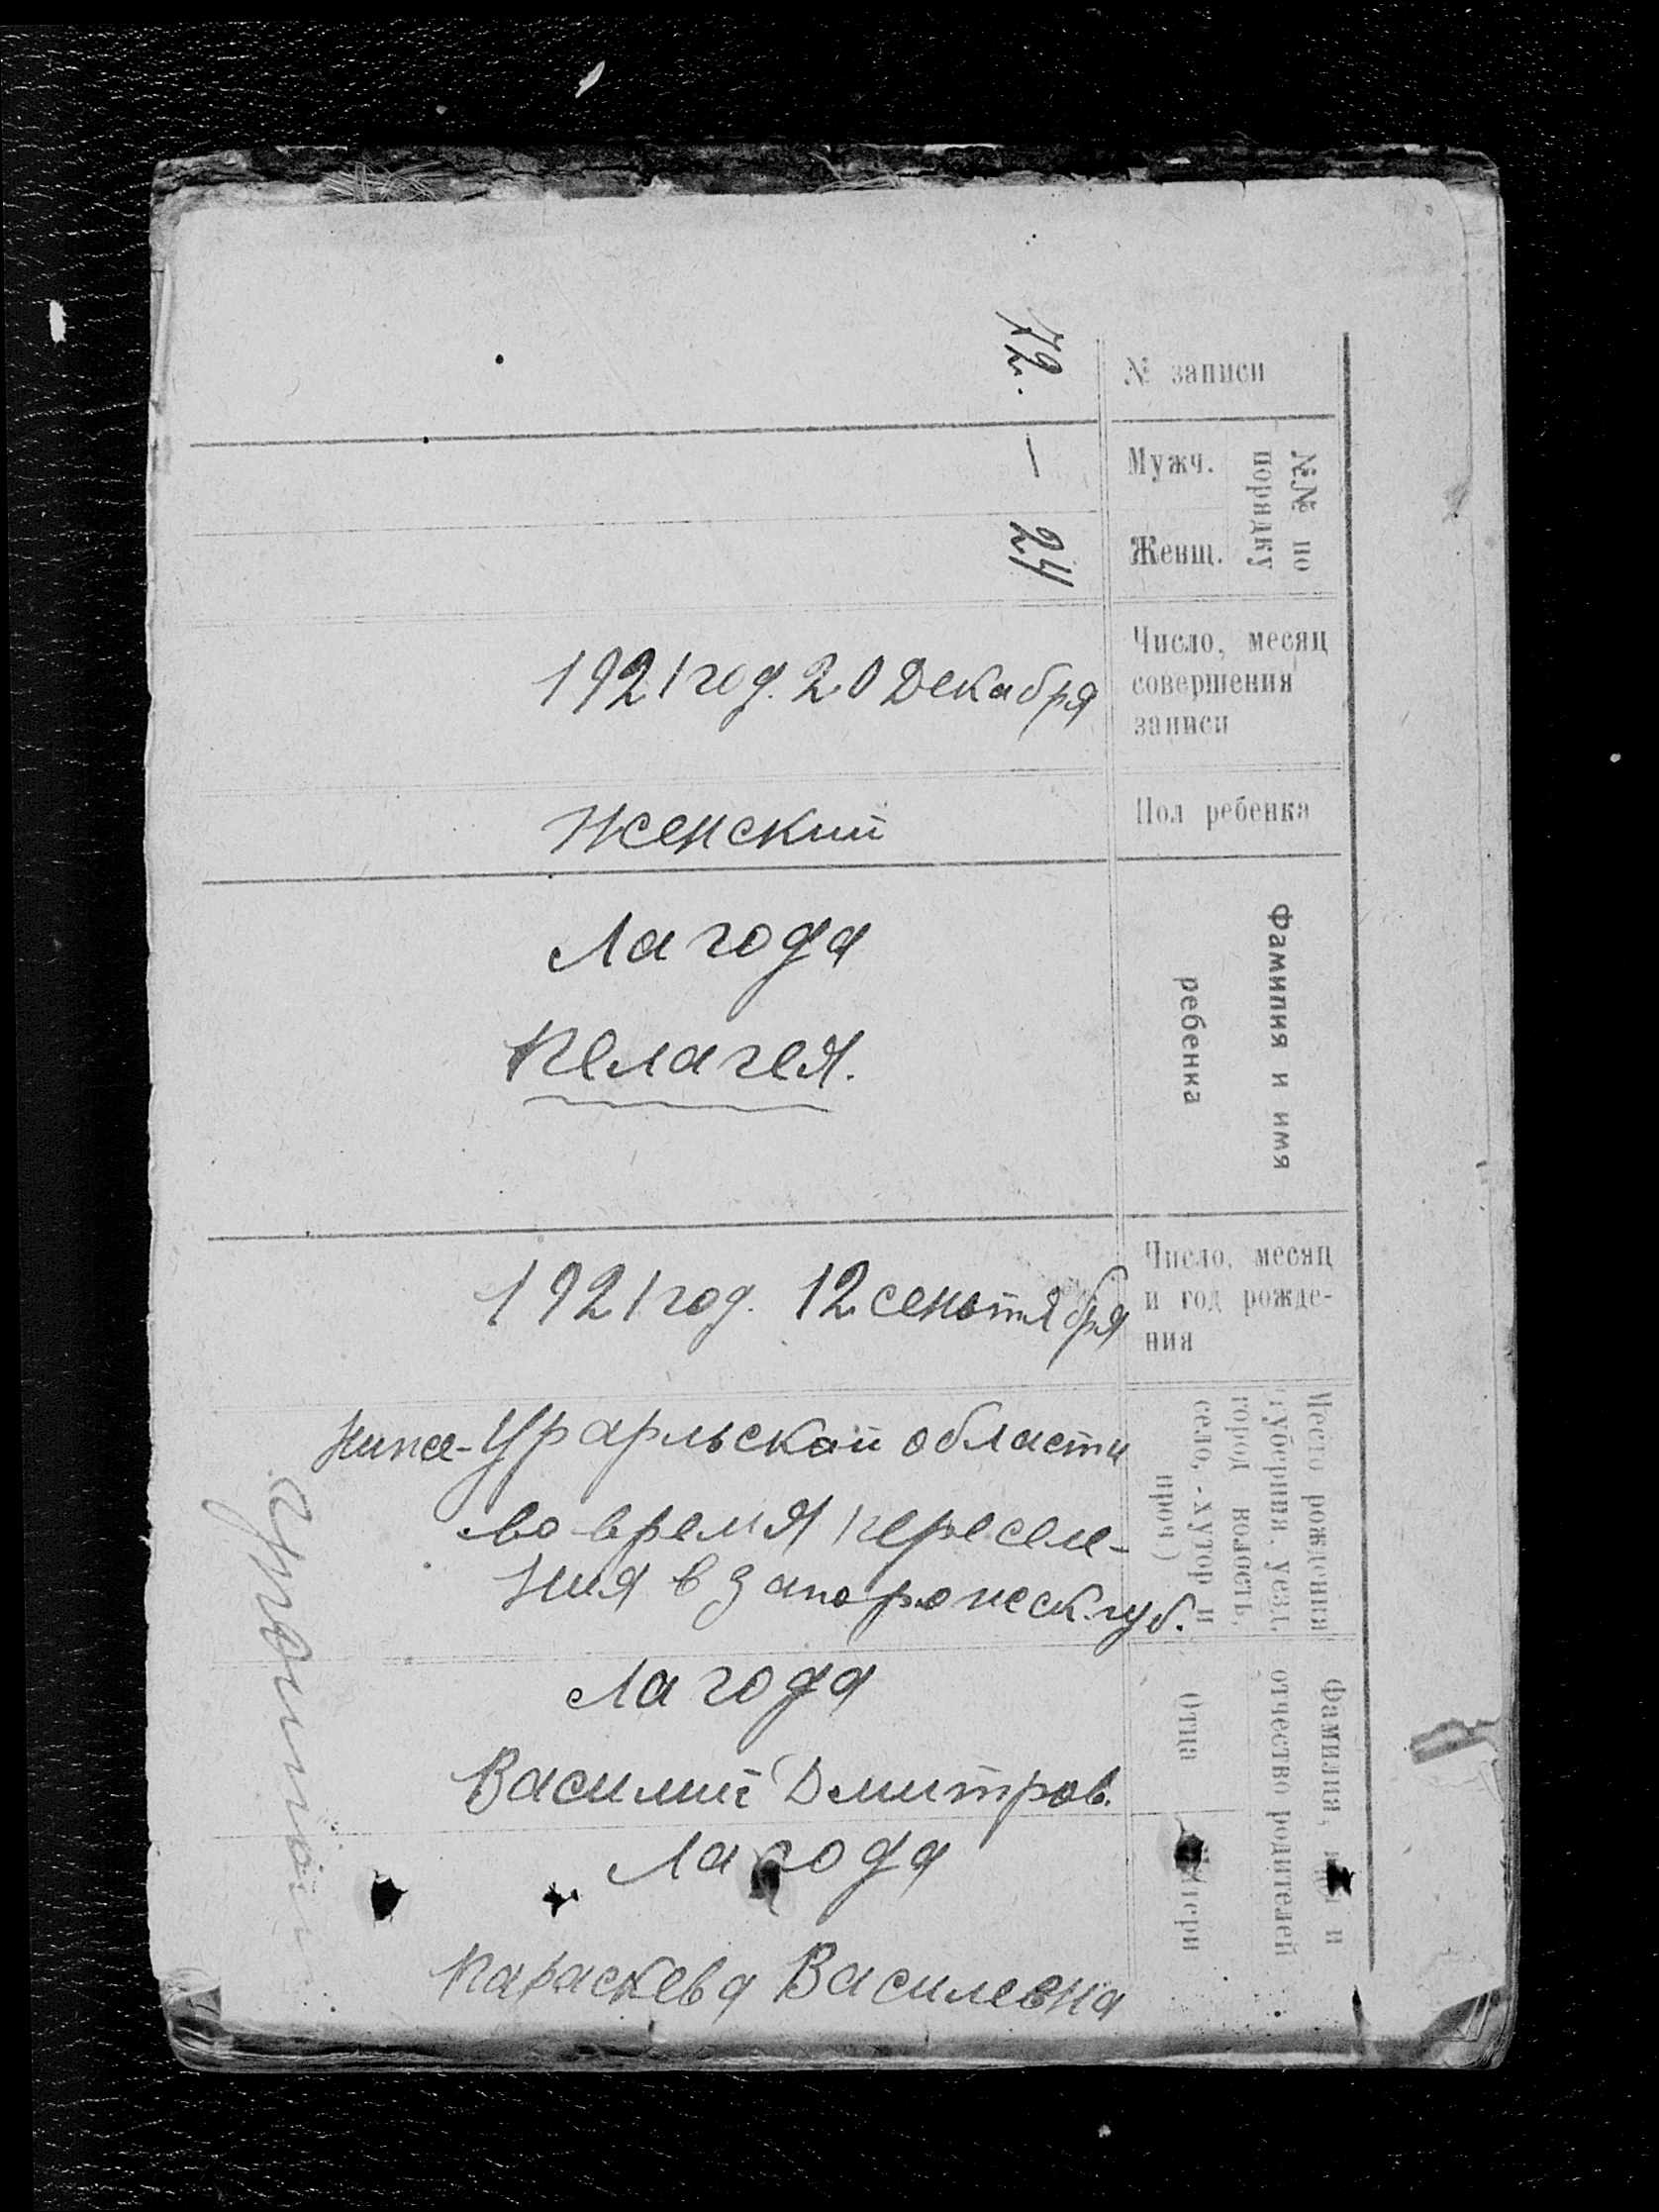 № записи
72.
№№ по
порядку
Мужч.
—
Женщ.
24
Число, месяц
совершения
записи
1921 год. 20 Декабря
Пол ребенка
Женский
Фамилия и имя
ребенка
Лагода
Пелагея.
Число, месяц
и год рожде-
ния
1921 год. 12 сеньтября
Место рождения
губерния, уезд,
город волость,
село, - хутор и
проч)
-Урарльской области
во время переселе-
ния в Запорожеск. губ.
Фамилия, имя и
отчество родителей
Отца
Лагода
Василий Дмитров.
Матери
Лагода
Параскева Василевна